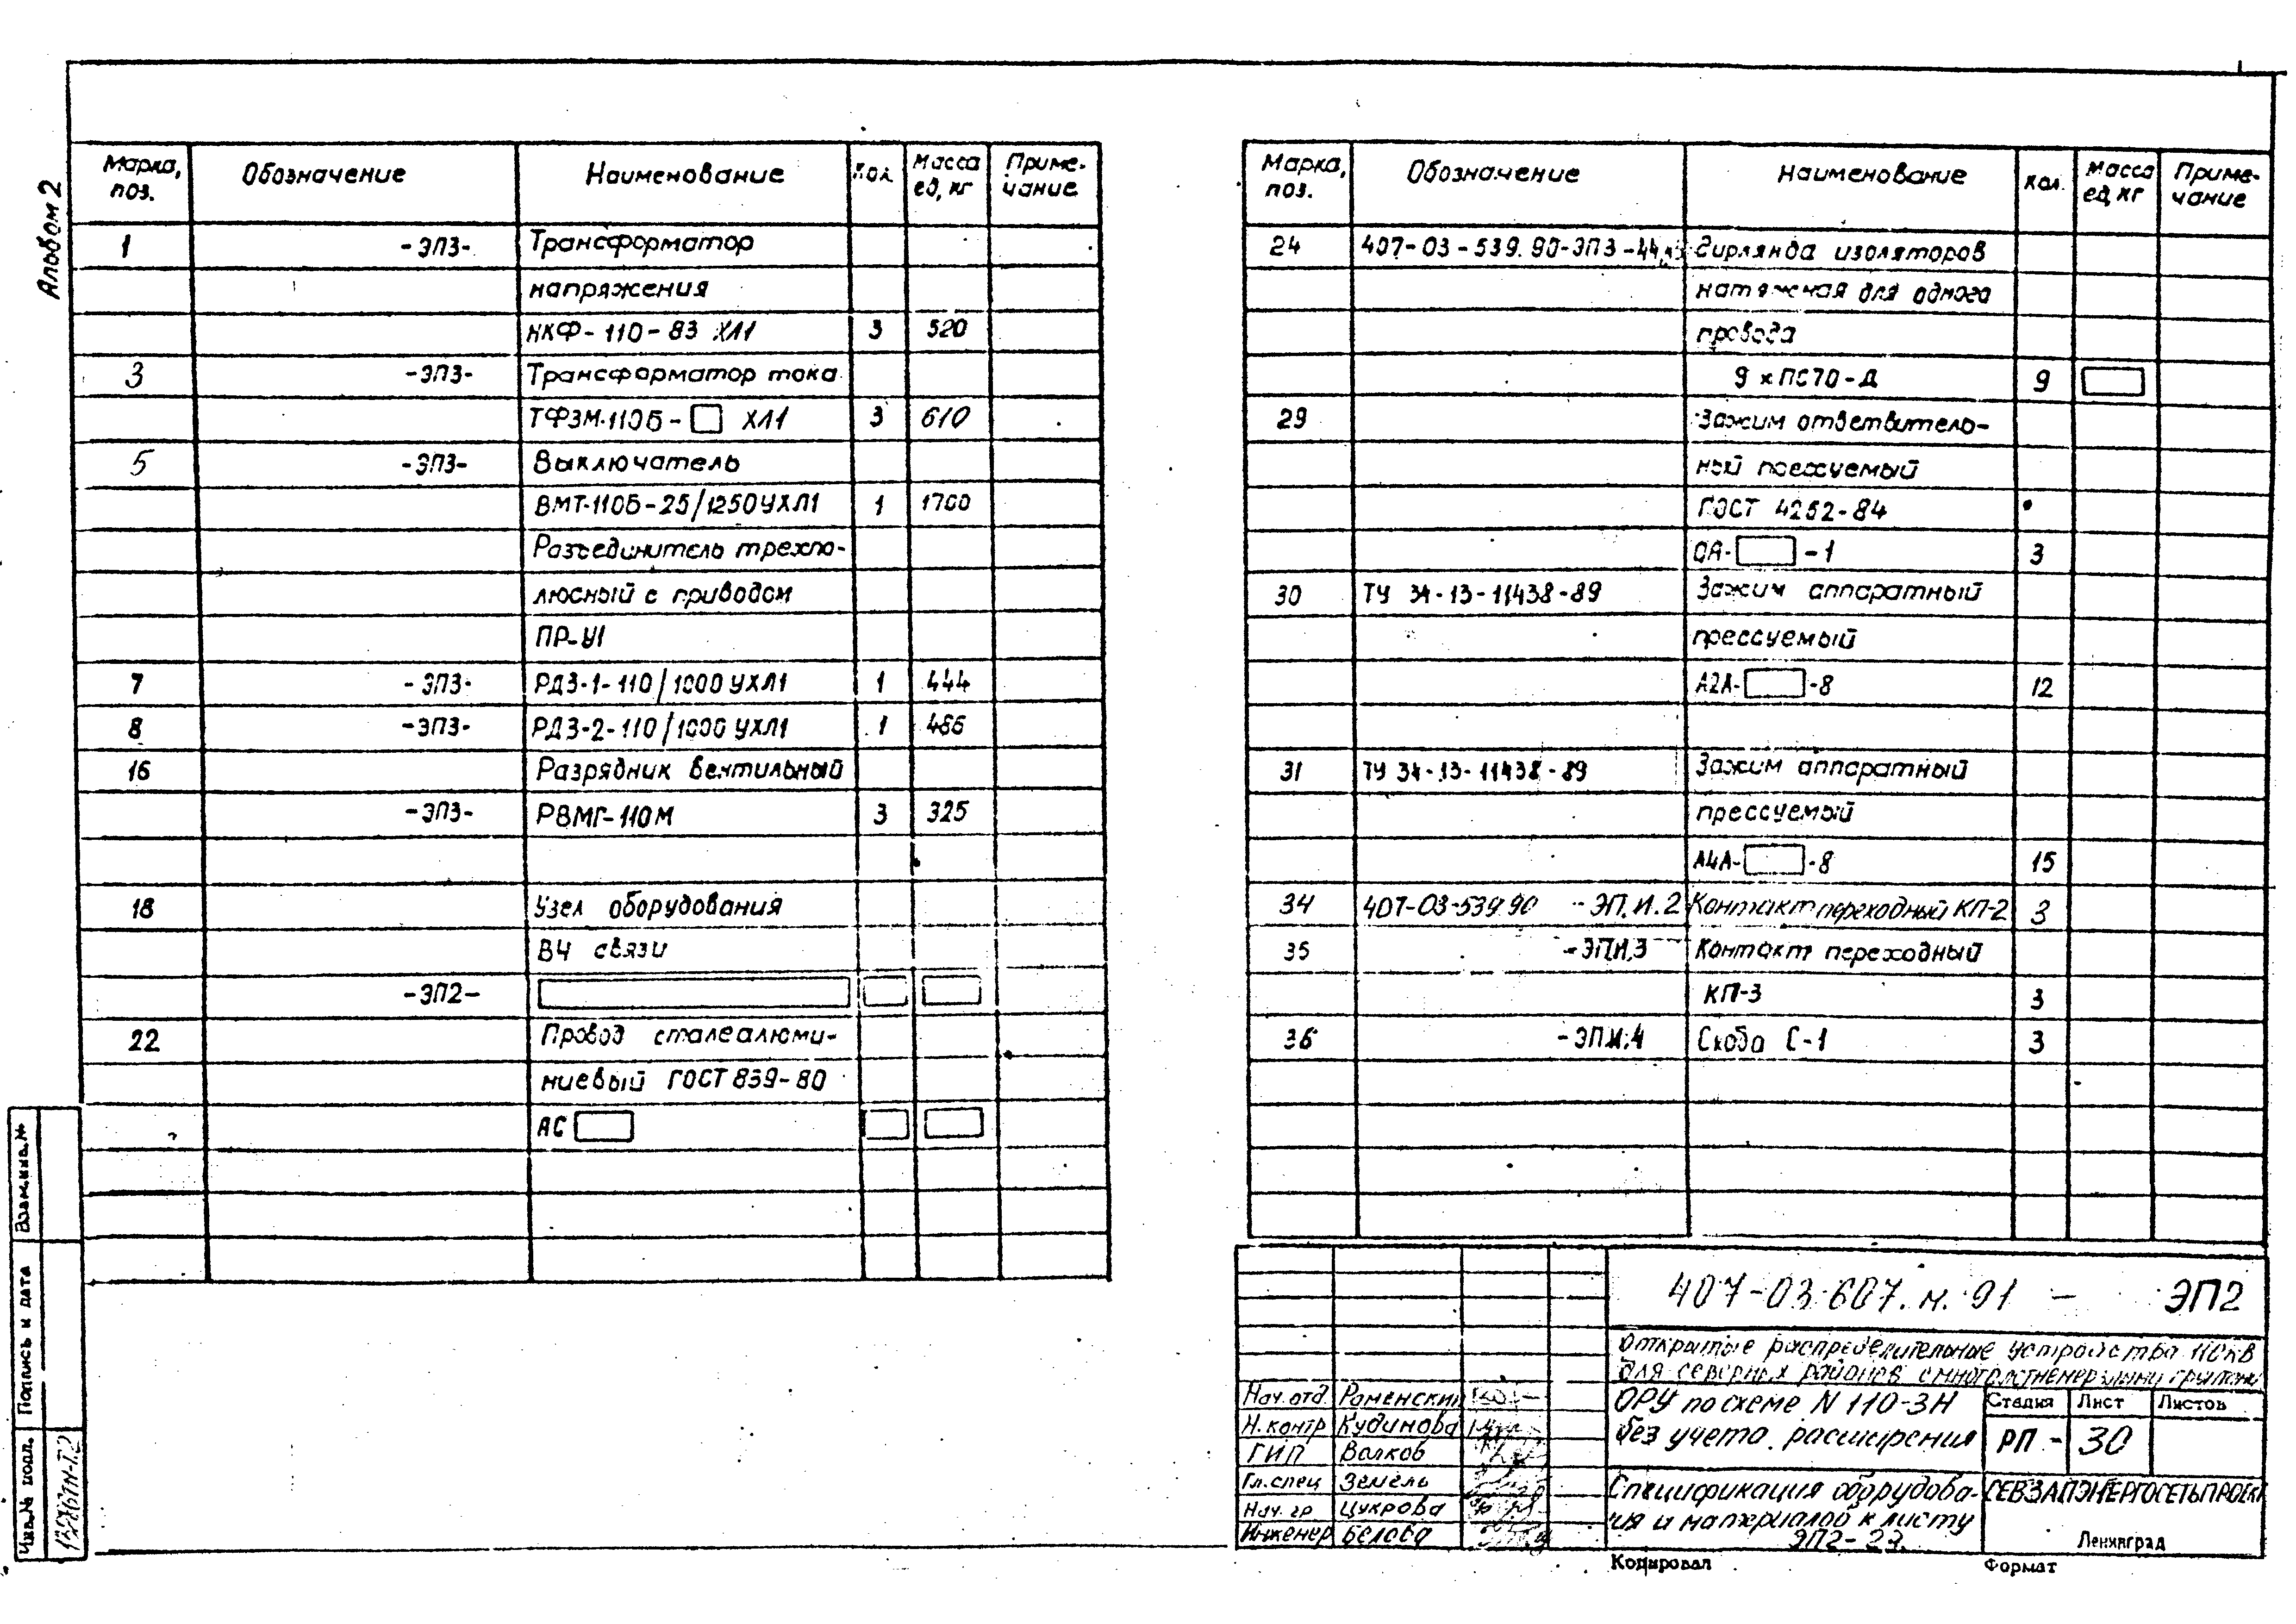 Альбом 2
Марка, поз. Обозначение Наименование Кол. Масса ед, кг Приме-чание
1 -ЭП3- Трансформатор
напряжения
НКФ-110-83 ХЛ1 3 520
3 -ЭП3- Трансформатор тока
ТФЗМ-110Б-□ ХЛ1 3 610
5 -ЭП3- Выключатель
ВМТ-110Б-25/1250УХЛ1 1 1700
Разъединитель трехпо-
люсный с приводом
ПР-У1
7 -ЭП3- РДЗ-1-110/1000 УХЛ1 1 444
8 -ЭП3- РДЗ-2-110/1000 УХЛ1 1 466
16 Разрядник вентильный
-ЭП3- РВМГ-110М 3 325
18 Узел оборудования
ВЧ связи
-ЭП2-
22 Провод сталеалюми-
ниевый ГОСТ 839-80
АС □
Марка, поз. Обозначение Наименование Кол. Масса ед, кг Приме-чание
24 407-03-539.90-ЭП3-44 Гирлянда изоляторов
натяжная для одного
провода
9 х ПС70-Д 9
29 Зажим ответвитель-
ный прессуемый
ГОСТ 4262-84
ОА-□-1 3
30 ТУ 34-13-11438-89 Зажим аппаратный
прессуемый
А2А-□-8 12
31 ТУ 34-13-11438-89 Зажим аппаратный
прессуемый
А4А-□-8 15
34 407-03-539.90 -ЭП.И.2 Контакт переходный КП-2 3
35 -ЭП.И.3 Контакт переходный
КП-3 3
36 -ЭП.И.4 Скоба С-1 3
407-03-607.м.91 - ЭП2
Открытые распределительные устройства 110кВ
для северных районов с многолетнемерзлыми грунтами
Нач.отд Раменский
Н.контр Кудинова
ГИП Волков
Гл.спец Земель
Нач.гр Цукрова
Инженер Белова
ОРУ по схеме N 110-3Н
без учета расширения
Стадия Лист Листов
РП - 30
Спецификация оборудова-
ния и материалов к листу
ЭП2-
СЕВЗАПЭНЕРГОСЕТЬПРОЕКТ
Ленинград
Копировал Формат
Взам.инв.№
Подпись и дата
Инв.№ подл.